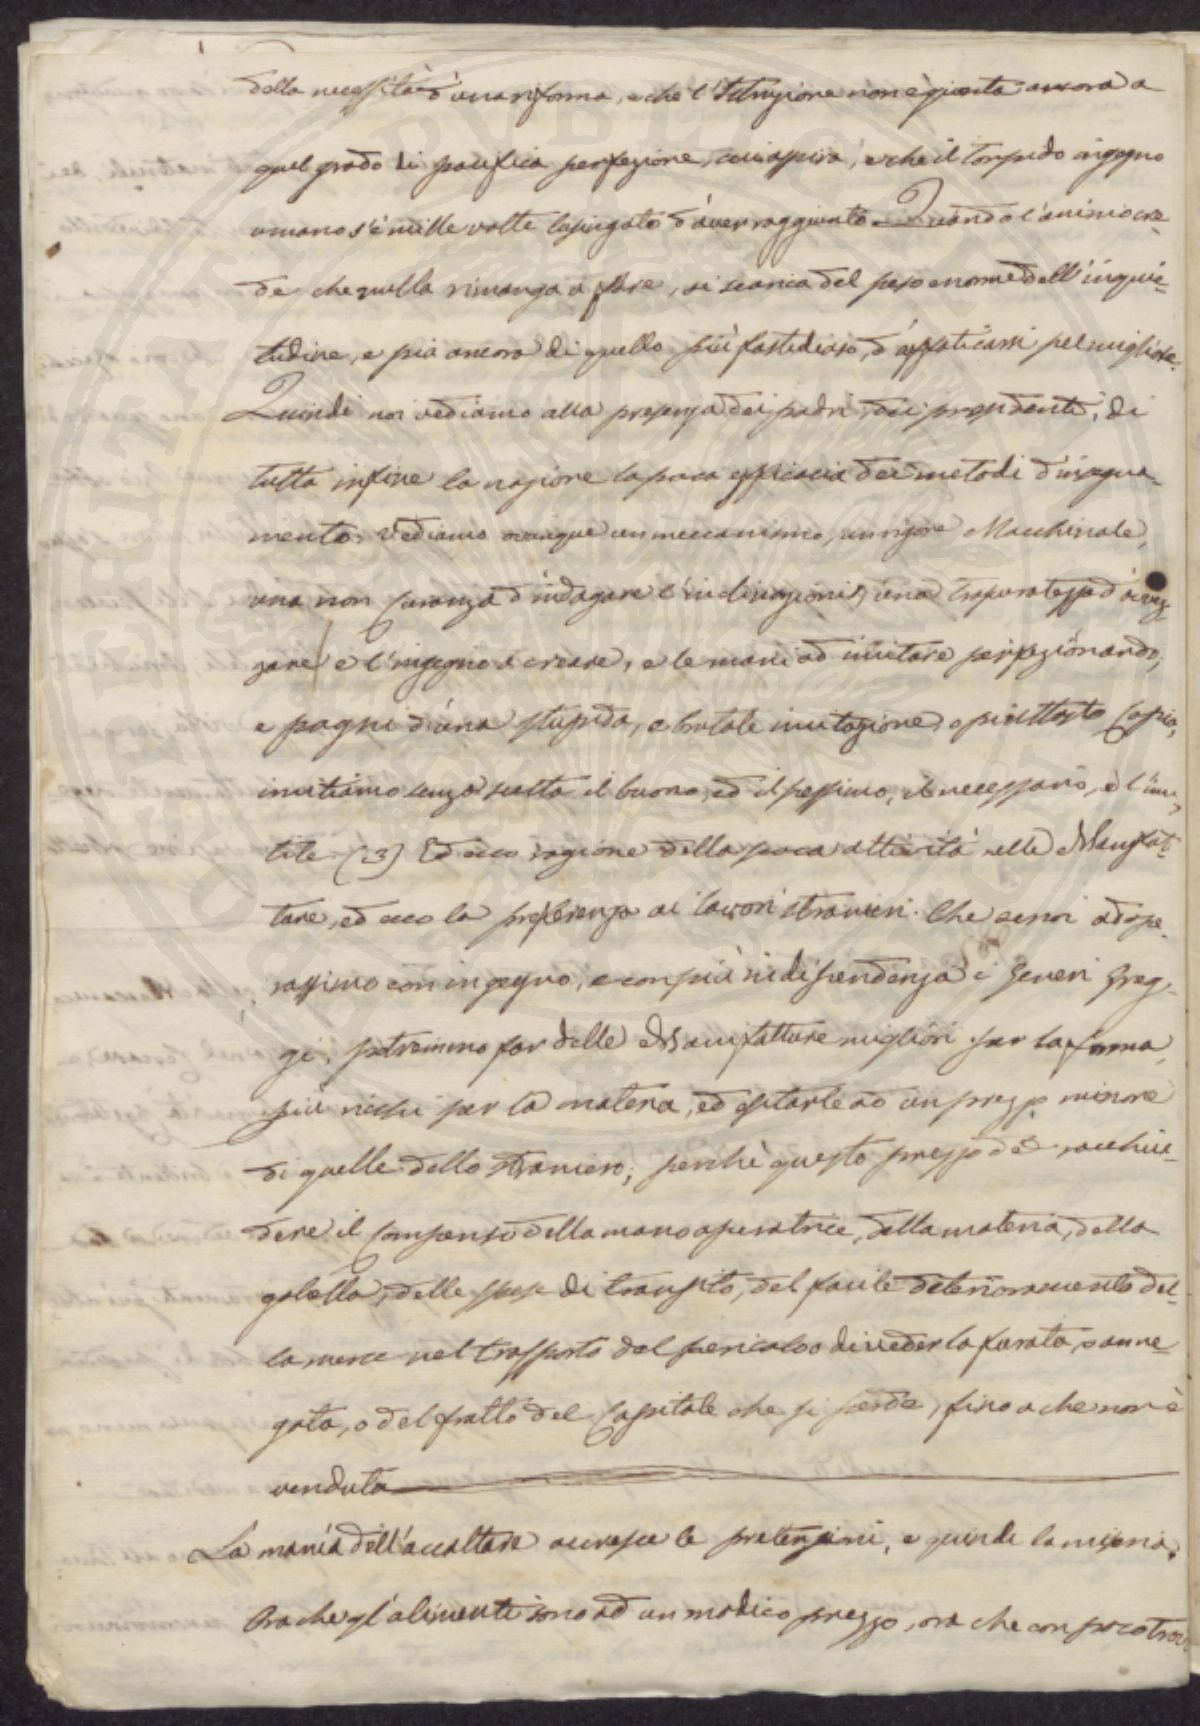 della necessità d'una riforma, e che l'Istruzione non è giunta ancora a
quel grado di pacifica perfezione, cui aspira, e che il torpido ingegno
umano s'è mille volte lusingato d'aver raggiunto. Quando l'animo cre-
de che nulla rimanga a fare, si scarica del peso enorme dell'inquie-
tudine, e più ancora di quello più fastidioso, d'affaticarsi pel migliore.
Quindi noi vediamo alla presenza dei padri, dei presidenti, di
tutta infine la nazione la poca efficacia dei metodi d'insegna-
mento. Vediamo ovunque un meccanismo, un rigore Macchinale,
una non curanza d'indagare l'inclinazioni, una trascuratezza d'avvez-
zare e l'ingegno a creare, e le mani ad imitare perfezionando,
e pagni d'una stupida, e brutale imitazione, o piuttosto Copia,
imitiamo senza scelta il buono, ed il pessimo, il necessario, e l'inu-
tile (3) Ed ecco ragione della poca attività nelle Manifat-
ture, ed ecco la preferenza ai lavori stranieri. Che se noi adope-
rassimo con ingegno, e con più indipendenza i generi greg-
gi, potremmo far delle Manifatture migliori per la forma,
più ricchi per la materia, ed esitarle ad un prezzo minore
di quelle dello straniero; perchè questo prezzo dè racchiu-
dere il compenso della mano operatrice, della materia, della
gabella, delle spese di transito, del facile deterioramento del-
la merce nel trasporto dal pericolo di vederla furata, o anne-
gata, o del frutto del Capitale che si perde, fino a che non è
venduta
La manìa dell'accattare accresce le pretenzioni, e quindi la miseria.
Ora che gl'alimenti sono ad un modico prezzo, ora che con poco trov